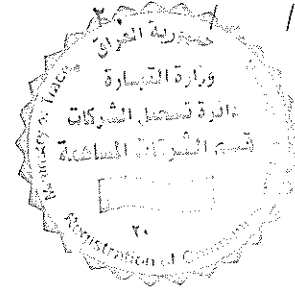 جمهورية العراق
وزارة التجارة
دائرة تسجيل الشركات
قسم الشركات المساهمة
٢٠
Ministry of Trade
Registration of